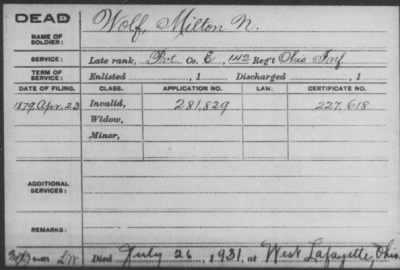 DEAD
NAME OF SOLDIER: Wolf, Milton N.
SERVICE: Late rank, Pvt. Co. E, 142 Reg't Ohio Inf.
TERM OF SERVICE: Enlisted , 1 Discharged , 1
DATE OF FILING. CLASS. APPLICATION NO. LAW. CERTIFICATE NO.
1879, Apr. 23 Invalid, 281,829 227,618
Widow,
Minor,
ADDITIONAL SERVICES:
REMARKS:
Died July 26, 1931, at West Lafayette, Ohio